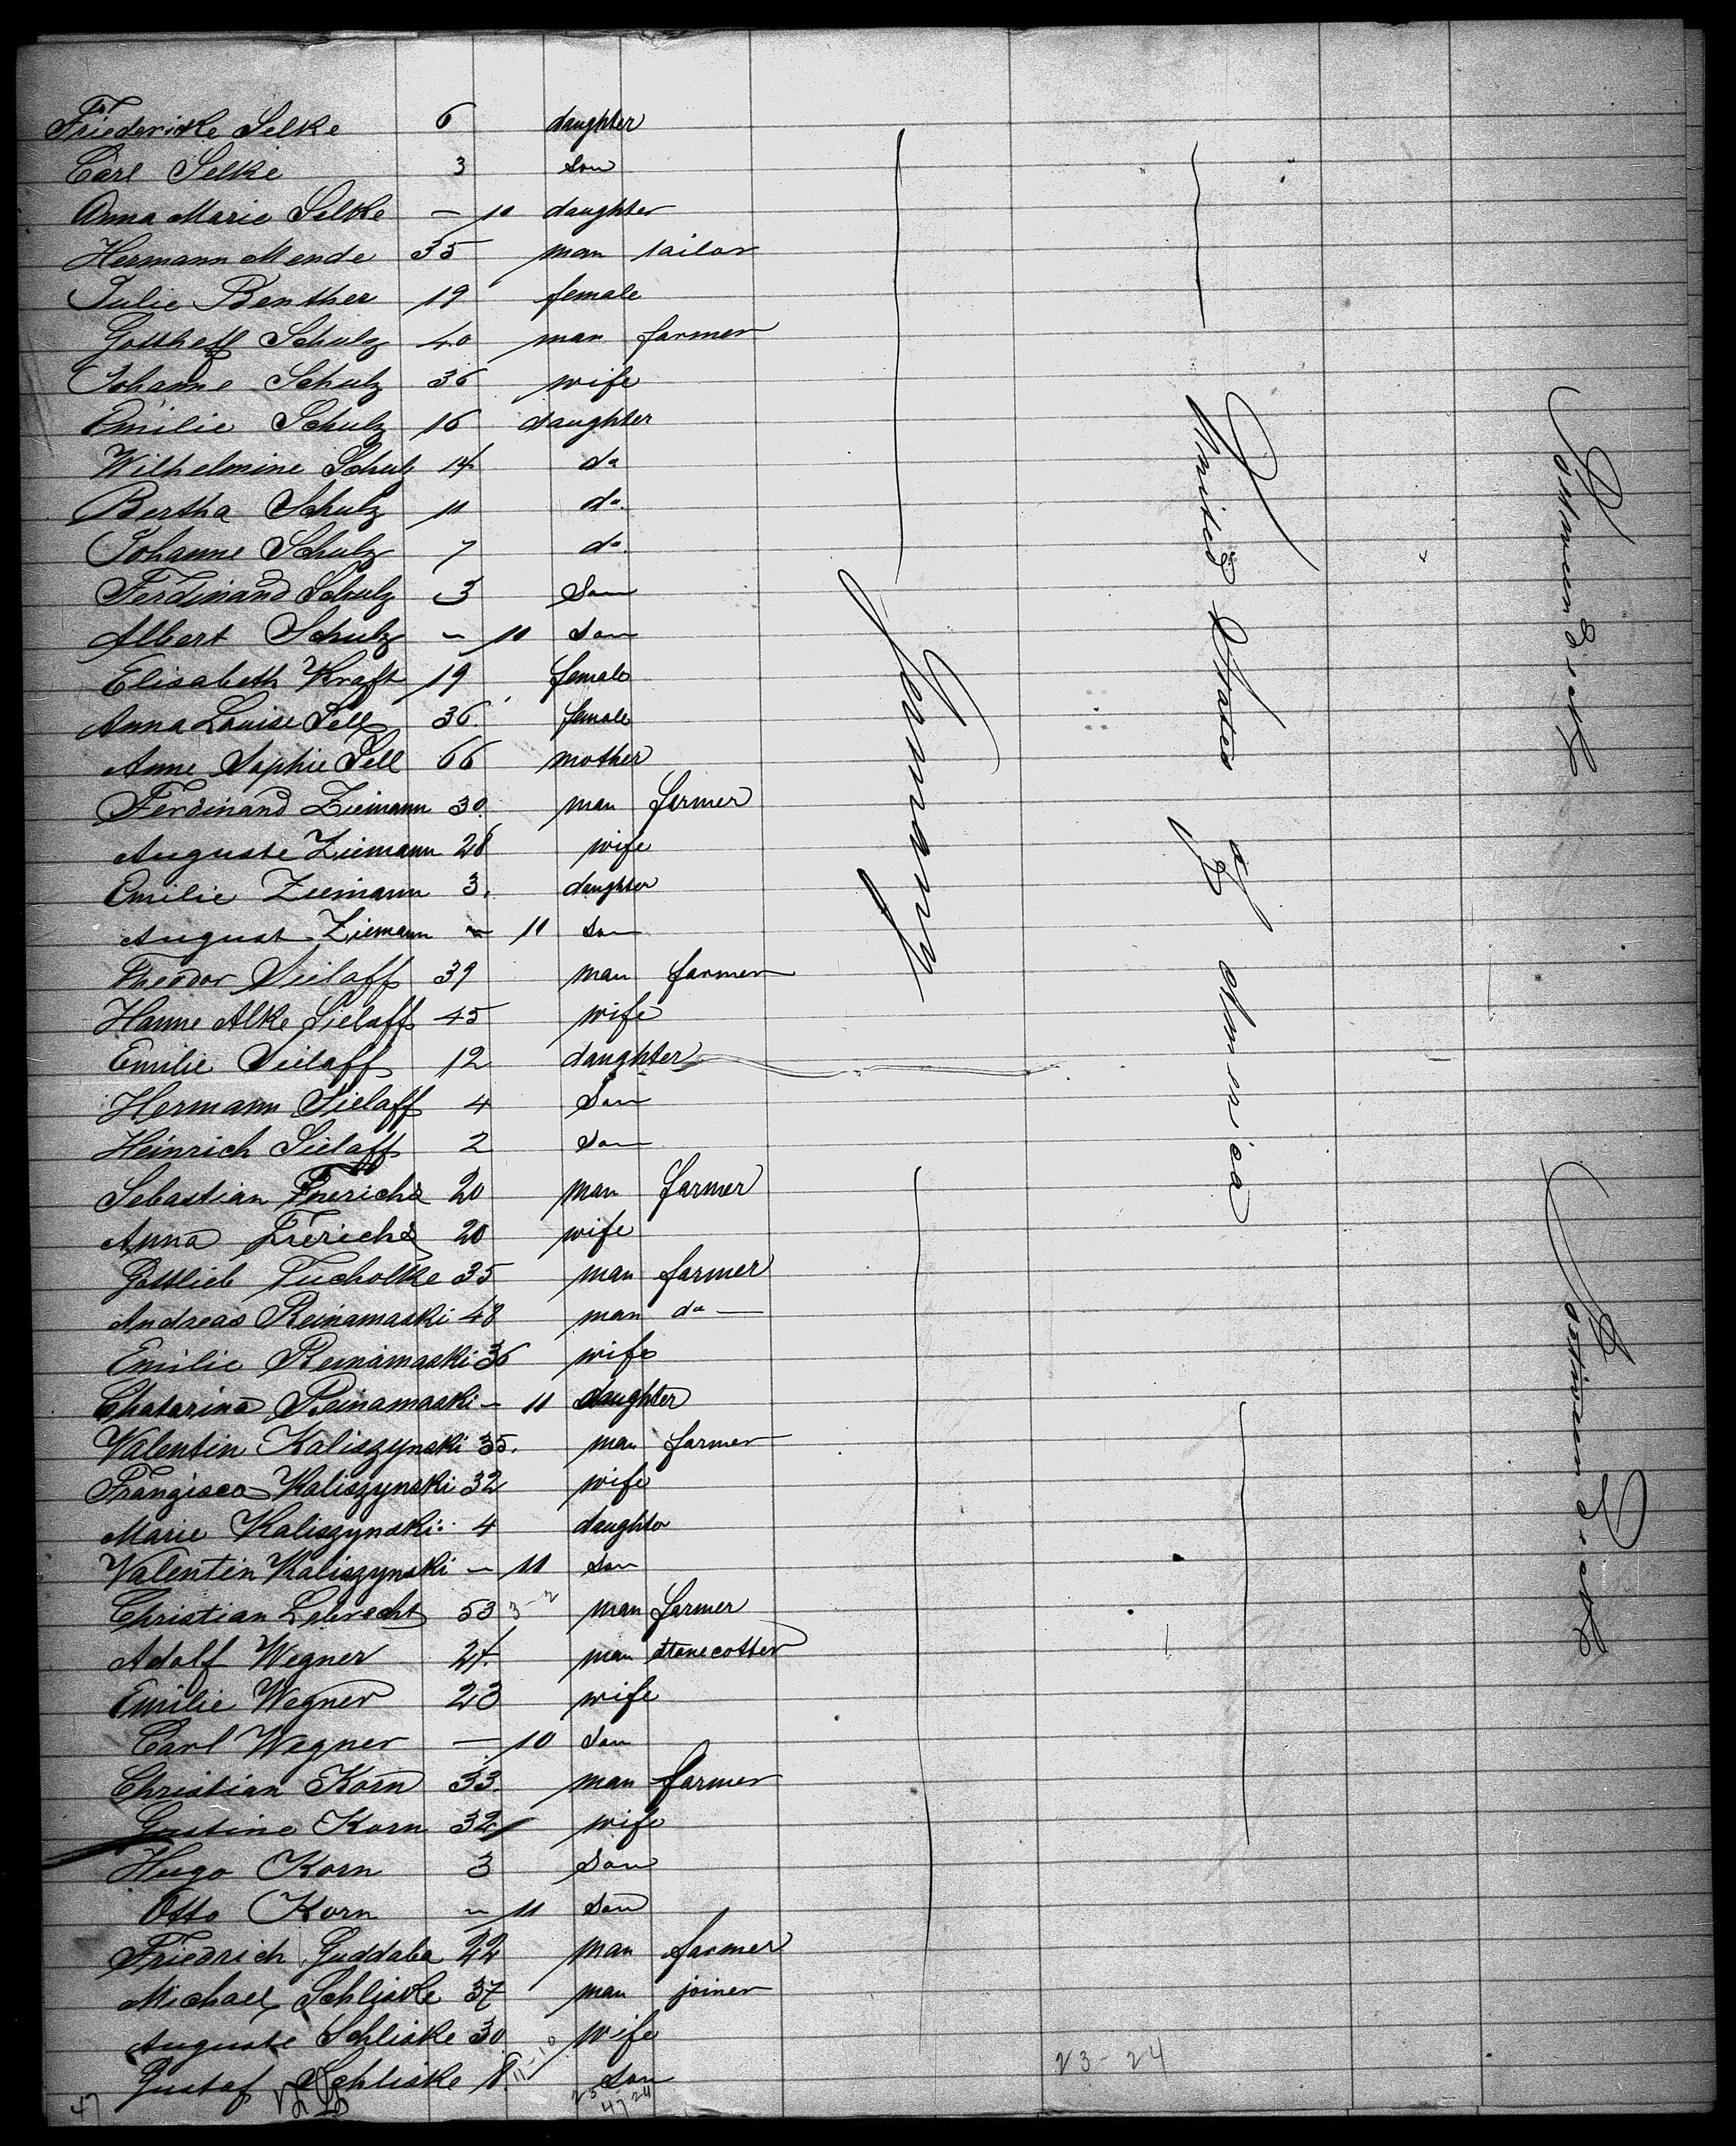 Friedericke Selke 6 daughter
Carl Selke 3 son
Anna Marie Selke – 10 daughter
Hermann Mende 35 man tailor
Julie Benther 19 female
Gotthelf Schulz 40 man farmer
Johanne Schulz 36 wife
Emilie Schulz 16 daughter
Wilhelmine Schulz 14 do
Bertha Schulz 11 do.
Johanne Schulz 7 do.
Ferdinand Schulz 3 Son
Albert Schulz – 10 son
Elisabeth Kraft 19 female
Anna Louise Sell 36. female
Anne Sophie Sell 66 mother
Ferdinand Ziemann 30. man farmer
Auguste Ziemann 28 wife
Emilie Ziemann 3. daughter
August Ziemann – 11 son
Theodor Sielaff 39 man farmer
Hanne Alke Sielaff 45 wife
Emilie Sielaff 12 daughter
Hermann Sielaff 4 Son
Heinrich Sielaff 2 Son
Sebastian 20 man farmer
Anna 20 wife
Gottlieb Tucholke 35 man farmer
Andreas Reinamaski 48 man do —
Emilie Reinamaski 36 wife
Chatarina Reinamaski – 11 daughter
Valentin Kaliszynski 35. man farmer
Franzisca Kaliszynski 32 wife
Marie Kaliszynski 4 daughter
Valentin Kaliszynski – 11 son
Christian Lebrecht 53 3-2 man farmer
Adolf Wegner 24. man stonecotter
Emilie Wegner 23 wife
Carl Wegner – 10 son
Christian Korn 33. man farmer
Gustine Korn 32 wife
Hugo Korn 3 Son
Otto Korn – 11 Son
Friedrich Guddaba 22 man farmer
Michael Schliske 37 man joiner
Auguste Schliske 30 wife
Gustaf Schliske 8 11-10 Son
47 25 24 47
23-24
Germany
United States of America